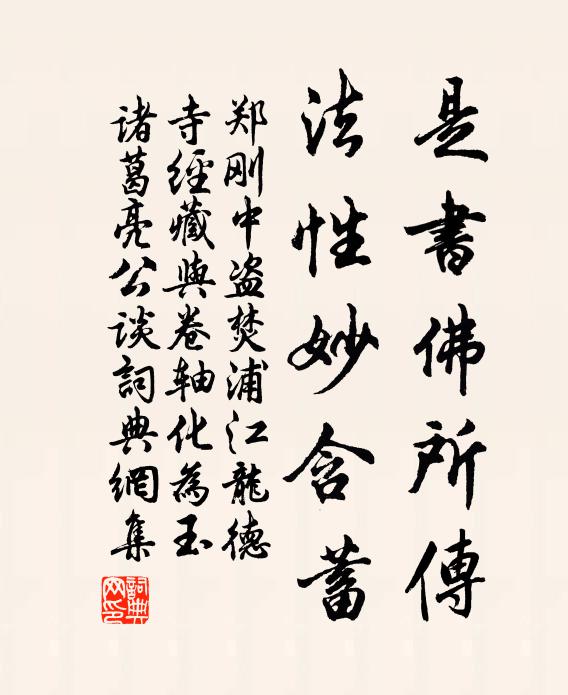 是書佛所傳
法性妙含蓄
郑刚中盗焚浦江龍德
寺經藏與卷轴化為玉
诸葛亮公谈詞典網集
詞典網印